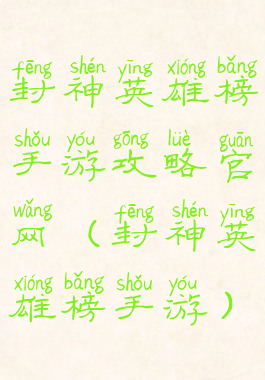 fēng shén yīng xióng bǎng
封神英雄榜
shǒu yóu gōng lüè guān
手游攻略官
wǎng fēng shén yīng
网（封神英
xióng bǎng shǒu yóu
雄榜手游）